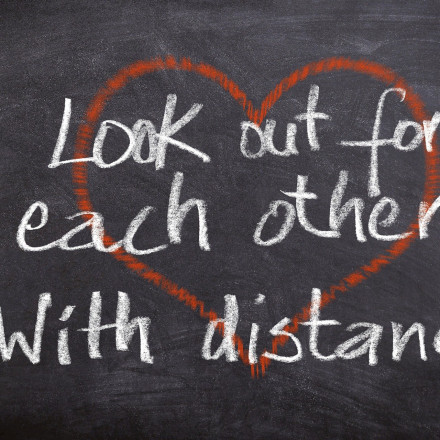 Look out for
each other
With distanc